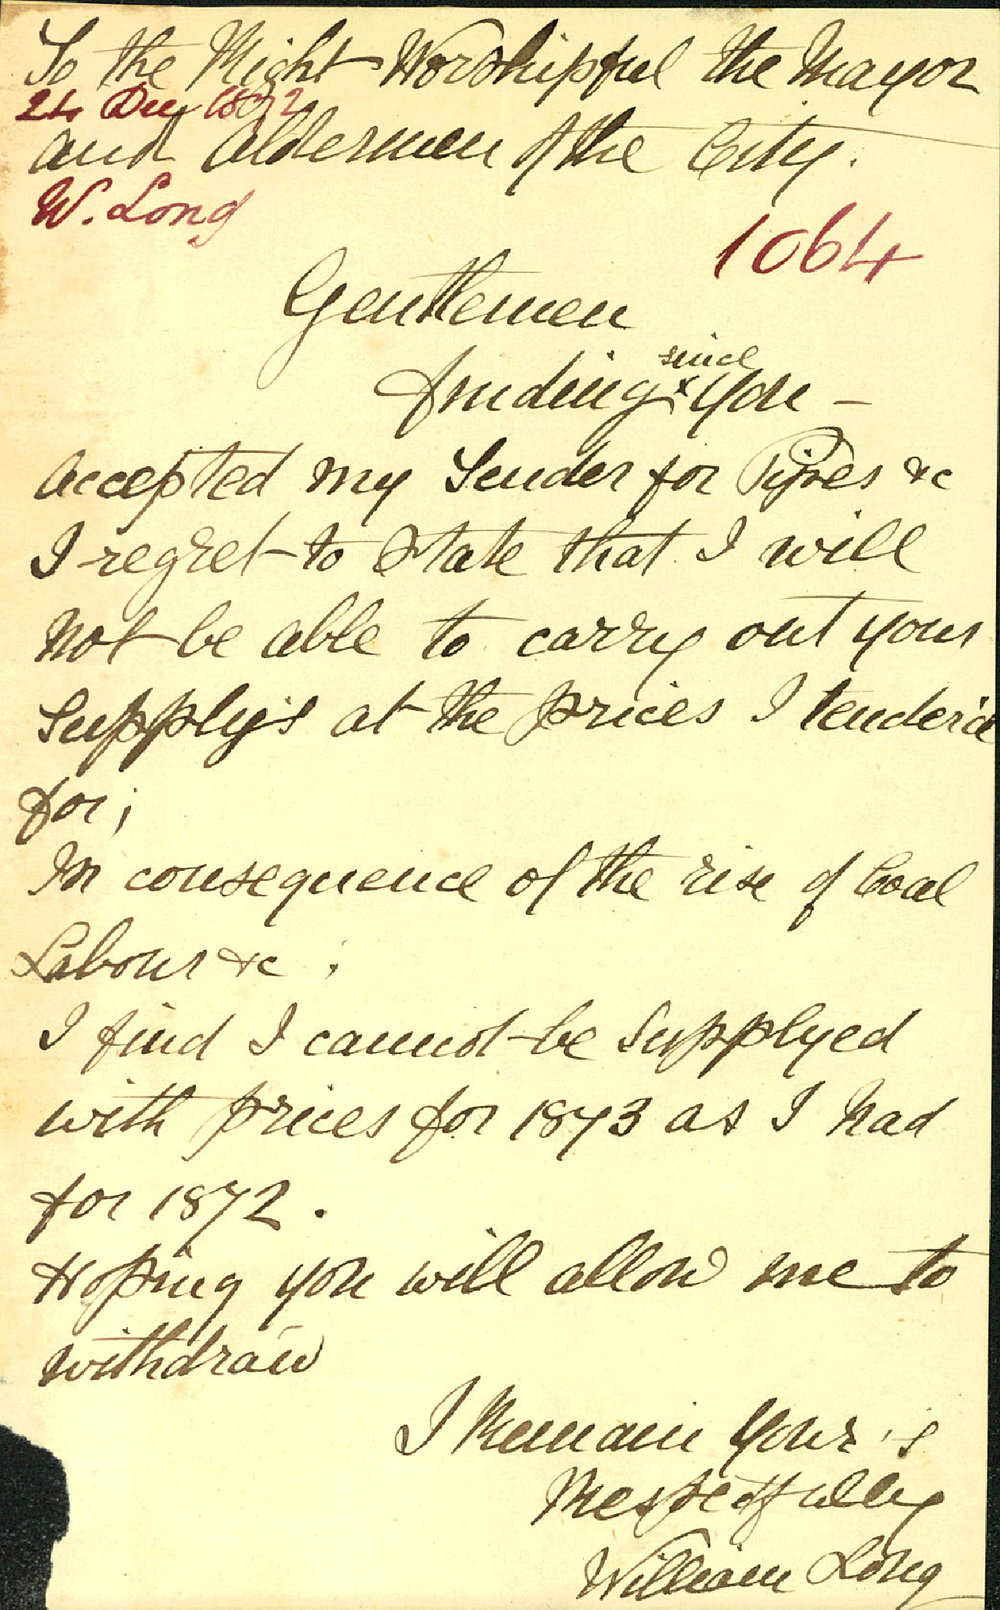 To the Right Worshipful the Mayor
24 Dec 1872
and Aldermen of the City.
W. Long
1064
Gentlemen
since
finding x you -
accepted my Tender for Pipes &c
I regret to State that I will
not be able to carry out your
Supply's at the prices I tender'd
for;
In consequence of the rise of Coal
Labour &c ;
I find I cannot be Supplyed
with prices for 1873 as I had
for 1872.
Hoping you will allow me to
withdraw
I Remain Your's
Respectfully
William Long